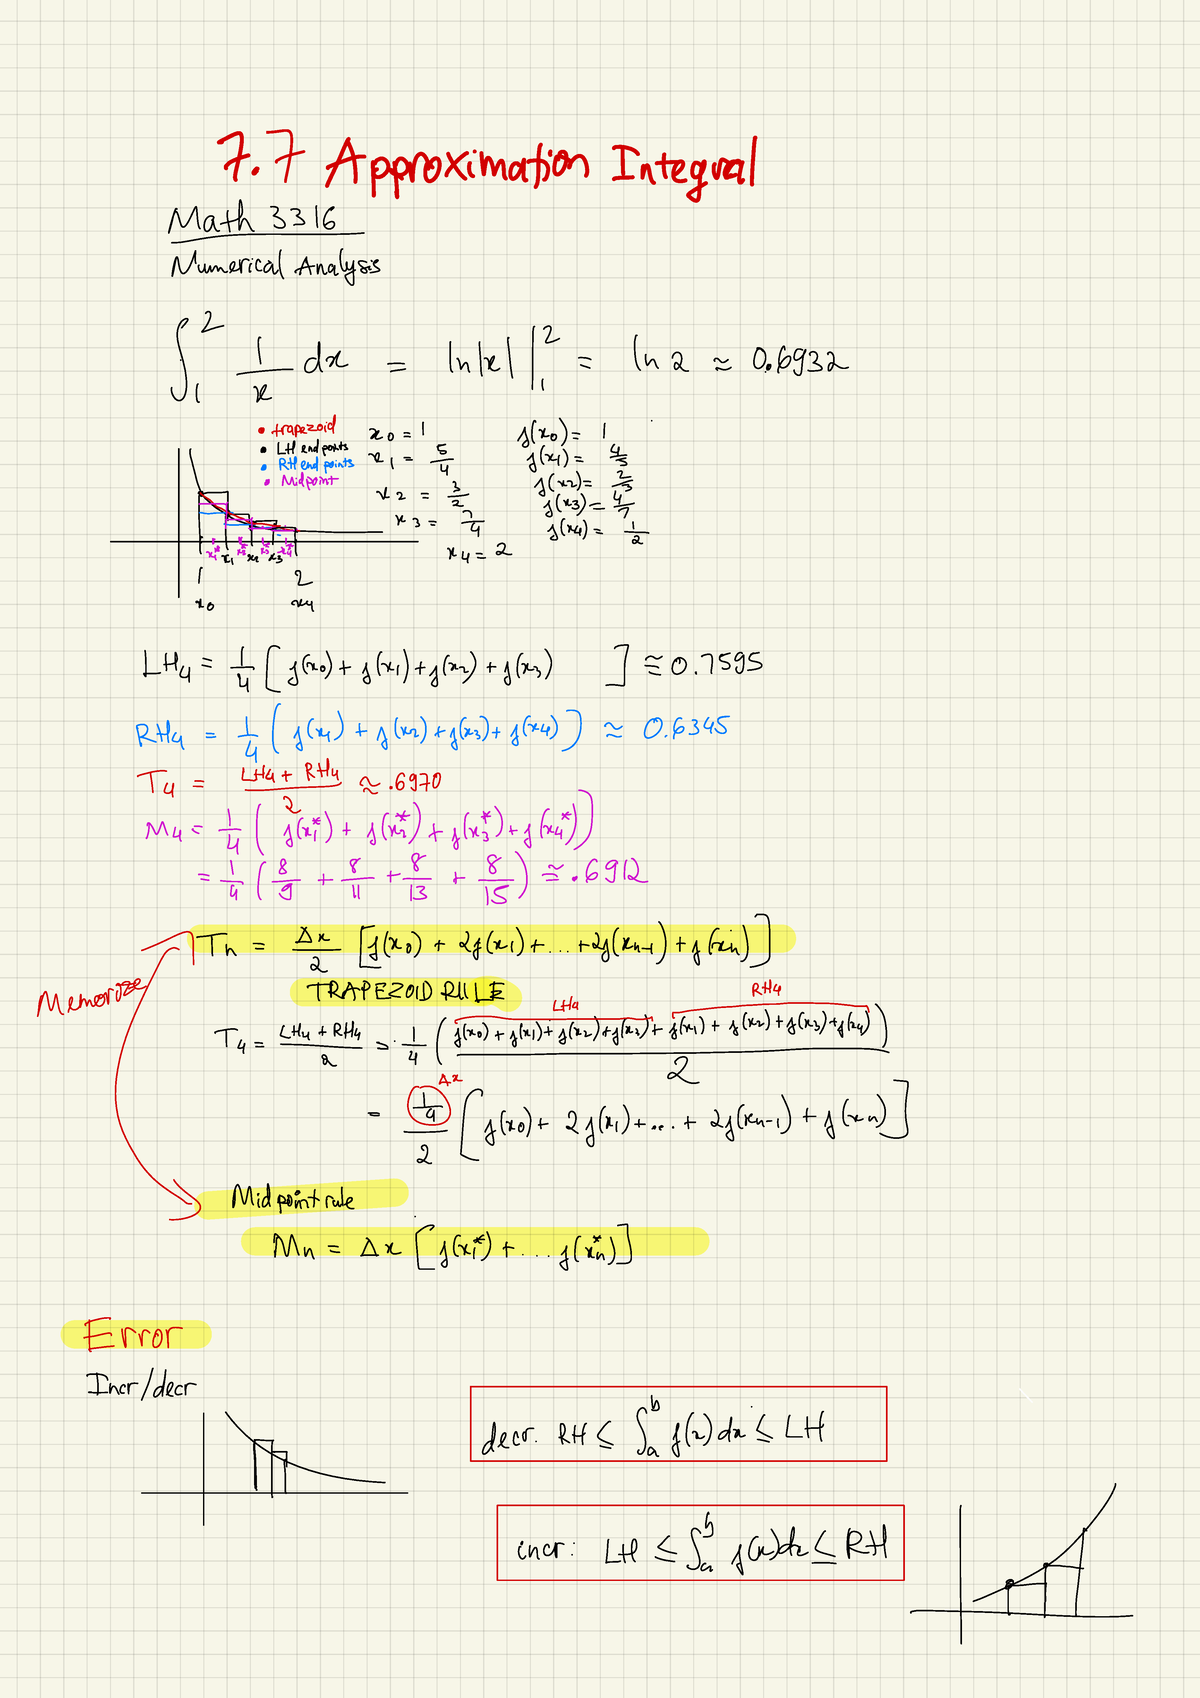 7.7 Approximation Integral
Math 3316
Numerical Analysis
∫₁² 1/x dx = ln|x| |₁² = ln 2 ≈ 0.6932
• trapezoid
• LH end points
• RH end points
• Midpoint
x0 = 1
x1 = 5/4
x2 = 3/2
x3 = 7/4
x4 = 2
f(x0) = 1
f(x1) = 4/5
f(x2) = 2/3
f(x3) = 4/7
f(x4) = 1/2
x1* x1 x2* x2 x3* x3 x4*
1 2
x0 x4
LH4 = 1/4 [f(x0) + f(x1) + f(x2) + f(x3) ] ≅ 0.7595
RH4 = 1/4 (f(x1) + f(x2) + f(x3) + f(x4)) ≈ 0.6345
T4 = (LH4 + RH4)/2 ≈ .6970
M4 = 1/4 (f(x1*) + f(x2*) + f(x3*) + f(x4*))
= 1/4 (8/9 + 8/11 + 8/13 + 8/15) ≅ .6912
Tn = Δx/2 [f(x0) + 2f(x1) + ... + 2f(xn-1) + f(xn)]
Memorize
TRAPEZOID RULE
LH4 RH4
T4 = (LH4 + RH4)/2 = 1/4 (f(x0) + f(x1) + f(x2) + f(x3) + f(x1) + f(x2) + f(x3) + f(x4))/2
Δx
= (1/4)/2 [f(x0) + 2f(x1) + ... + 2f(xn-1) + f(xn)]
Midpoint rule
Mn = Δx [f(x1*) + ... f(xn*)]
Error
Incr/decr
decr. RH ≤ ∫ₐᵇ f(x)dx ≤ LH
incr: LH ≤ ∫ₐᵇ f(x)dx ≤ RH